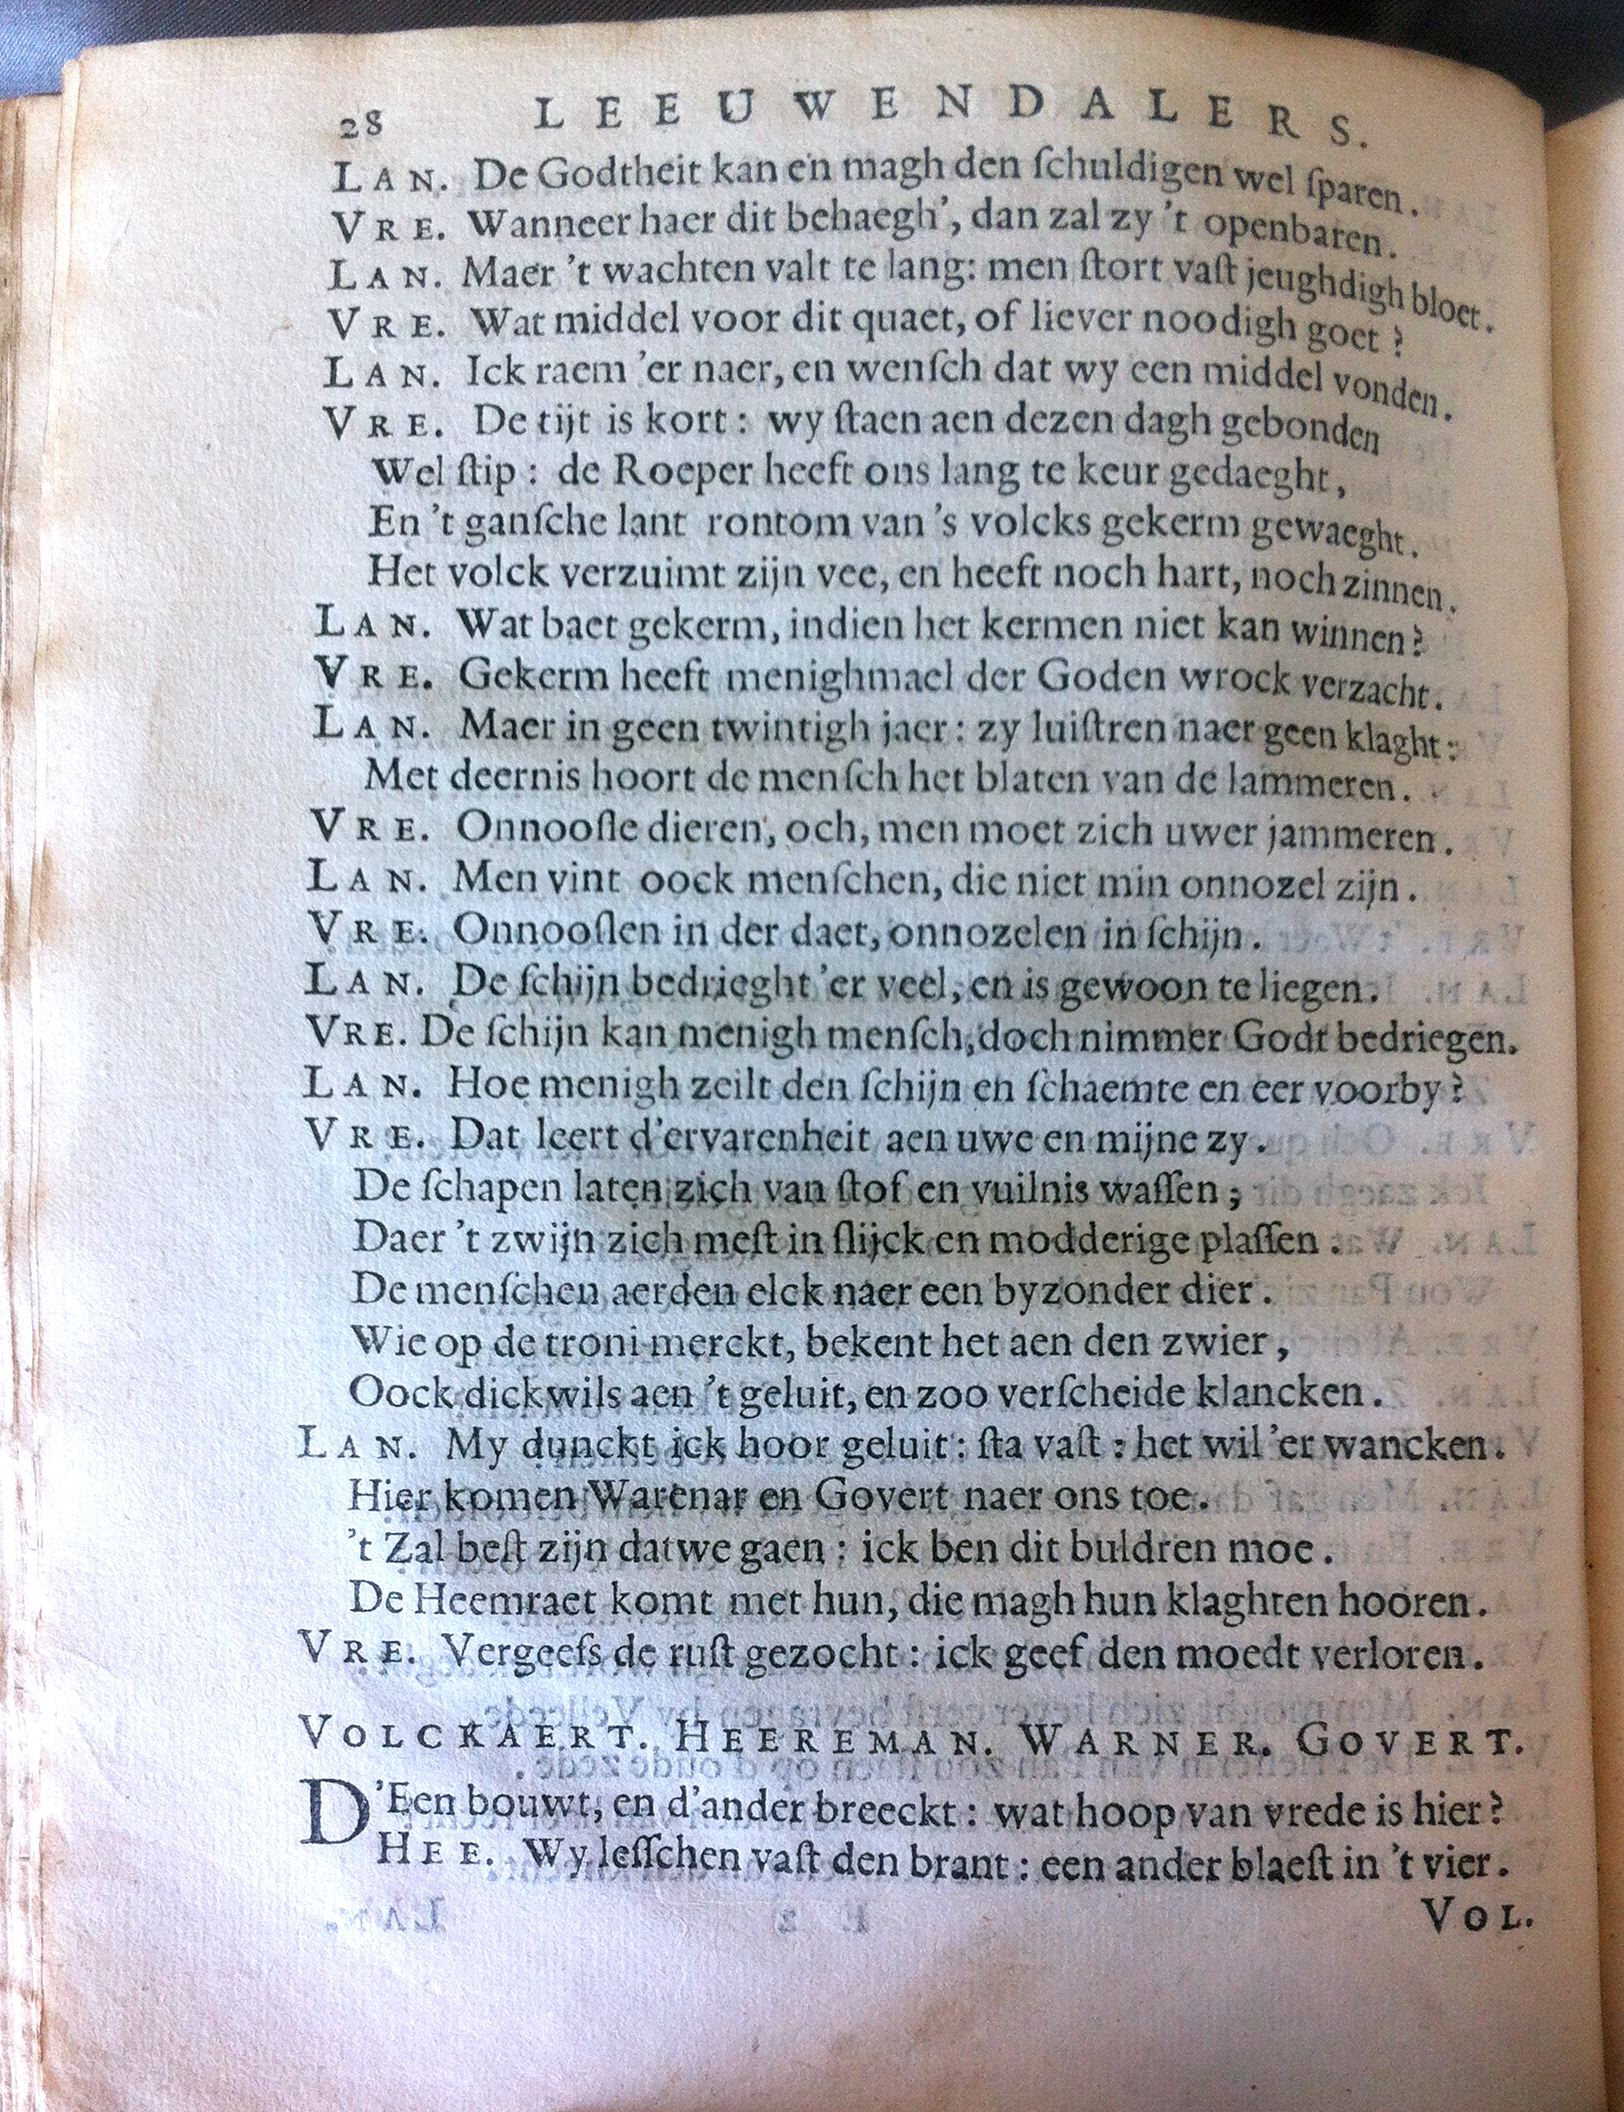 28 LEEUWENDALERS.
LAN. De Godtheit kan en magh den ſchuldigen wel ſparen.
VRE. Wanneer haer dit behaegh', dan zal zy 't openbaren.
LAN. Maer 't wachten valt te lang: men ſtort vaſt jeughdigh bloet.
VRE. Wat middel voor dit quaet, of liever noodigh goet?
LAN. Ick raem 'er naer, en wenſch dat wy een middel vonden.
VRE. De tijt is kort: wy ſtaen aen dezen dagh gebonden
Wel ſtip: de Roeper heeft ons lang te keur gedaeght,
En 't ganſche lant rontom van 's volcks gekerm gewaeght.
Het volck verzuimt zijn vee, en heeft noch hart, noch zinnen.
LAN. Wat baet gekerm, indien het kermen niet kan winnen?
VRE. Gekerm heeft menighmael der Goden wrock verzacht.
LAN. Maer in geen twintigh jaer: zy luiſtren naer geen klaght:
Met deernis hoort de menſch het blaten van de lammeren.
VRE. Onnooſle dieren, och, men moet zich uwer jammeren.
LAN. Men vint oock menſchen, die niet min onnozel zijn.
VRE. Onnooſlen in der daet, onnozelen in ſchijn.
LAN. De ſchijn bedrieght 'er veel, en is gewoon te liegen.
VRE. De ſchijn kan menigh menſch, doch nimmer Godt bedriegen.
LAN. Hoe menigh zeilt den ſchijn en ſchaemte en eer voorby?
VRE. Dat leert d'ervarenheit aen uwe en mijne zy.
De ſchapen laten zich van ſtof en vuilnis waſſen;
Daer 't zwijn zich meſt in ſlijck en modderige plaſſen.
De menſchen aerden elck naer een byzonder dier.
Wie op de troni merckt, bekent het aen den zwier,
Oock dickwils aen 't geluit, en zoo verſcheide klancken.
LAN. My dunckt ick hoor geluit: ſta vaſt: het wil 'er wancken.
Hier komen Warenar en Govert naer ons toe.
't Zal beſt zijn datwe gaen: ick ben dit buldren moe.
De Heemraet komt met hun, die magh hun klaghten hooren.
VRE. Vergeefs de ruſt gezocht: ick geef den moedt verloren.
VOLCKAERT. HEEREMAN. WARNER. GOVERT.
D'Een bouwt, en d'ander breeckt: wat hoop van vrede is hier?
HEE. Wy leſſchen vaſt den brant: een ander blaeſt in 't vier.
VOL.